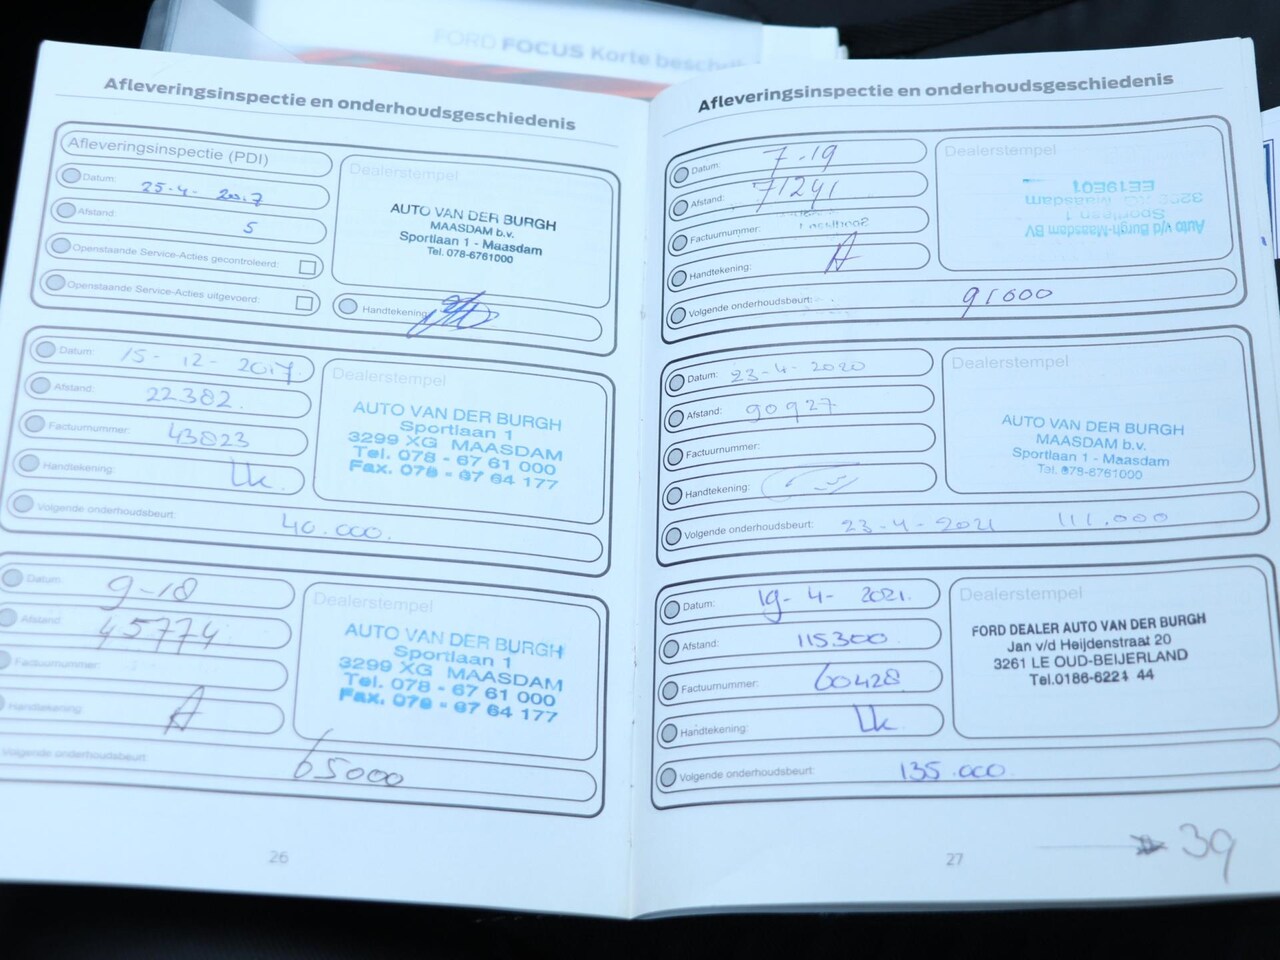 FORD FOCUS Korte besch
Afleveringsinspectie en onderhoudsgeschiedenis
Afleveringsinspectie (PDI)
Datum: 25-4-2017
Afstand: 5
Openstaande Service-Acties gecontroleerd:
Openstaande Service-Acties uitgevoerd:
Dealerstempel
AUTO VAN DER BURGH
MAASDAM b.v.
Sportlaan 1 - Maasdam
Tel. 078-6761000
Handtekening:
Datum: 15-12-2017
Afstand: 22382.
Factuurnummer: 43823
Handtekening:
Volgende onderhoudsbeurt: 40.000.
Dealerstempel
AUTO VAN DER BURGH
Sportlaan 1
3299 XG MAASDAM
Tel. 078 - 67 61 000
Fax. 078 - 67 64 177
Datum: 9-18
Afstand: 45774
Factuurnummer:
Handtekening:
Volgende onderhoudsbeurt: 65000
Dealerstempel
AUTO VAN DER BURGH
Sportlaan 1
3299 XG MAASDAM
Tel. 078 - 67 61 000
Fax. 078 - 67 64 177
26
Afleveringsinspectie en onderhoudsgeschiedenis
Datum: 7-19
Afstand: 71241
Factuurnummer:
Handtekening:
Volgende onderhoudsbeurt: 91000
Dealerstempel
EE19E01
3299 XG Maasdam
Sportlaan 1
Auto v/d Burgh-Maasdam BV
Datum: 23-4-2020
Afstand: 90927
Factuurnummer:
Handtekening:
Volgende onderhoudsbeurt: 23-4-2021 111.000
Dealerstempel
AUTO VAN DER BURGH
MAASDAM b.v.
Sportlaan 1 - Maasdam
Tel. 078-6761000
Datum: 19-4-2021.
Afstand: 115300
Factuurnummer: 60428
Handtekening:
Volgende onderhoudsbeurt: 135.000
Dealerstempel
FORD DEALER AUTO VAN DER BURGH
Jan v/d Heijdenstraat 20
3261 LE OUD-BEIJERLAND
Tel.0186-6221 44
27
39